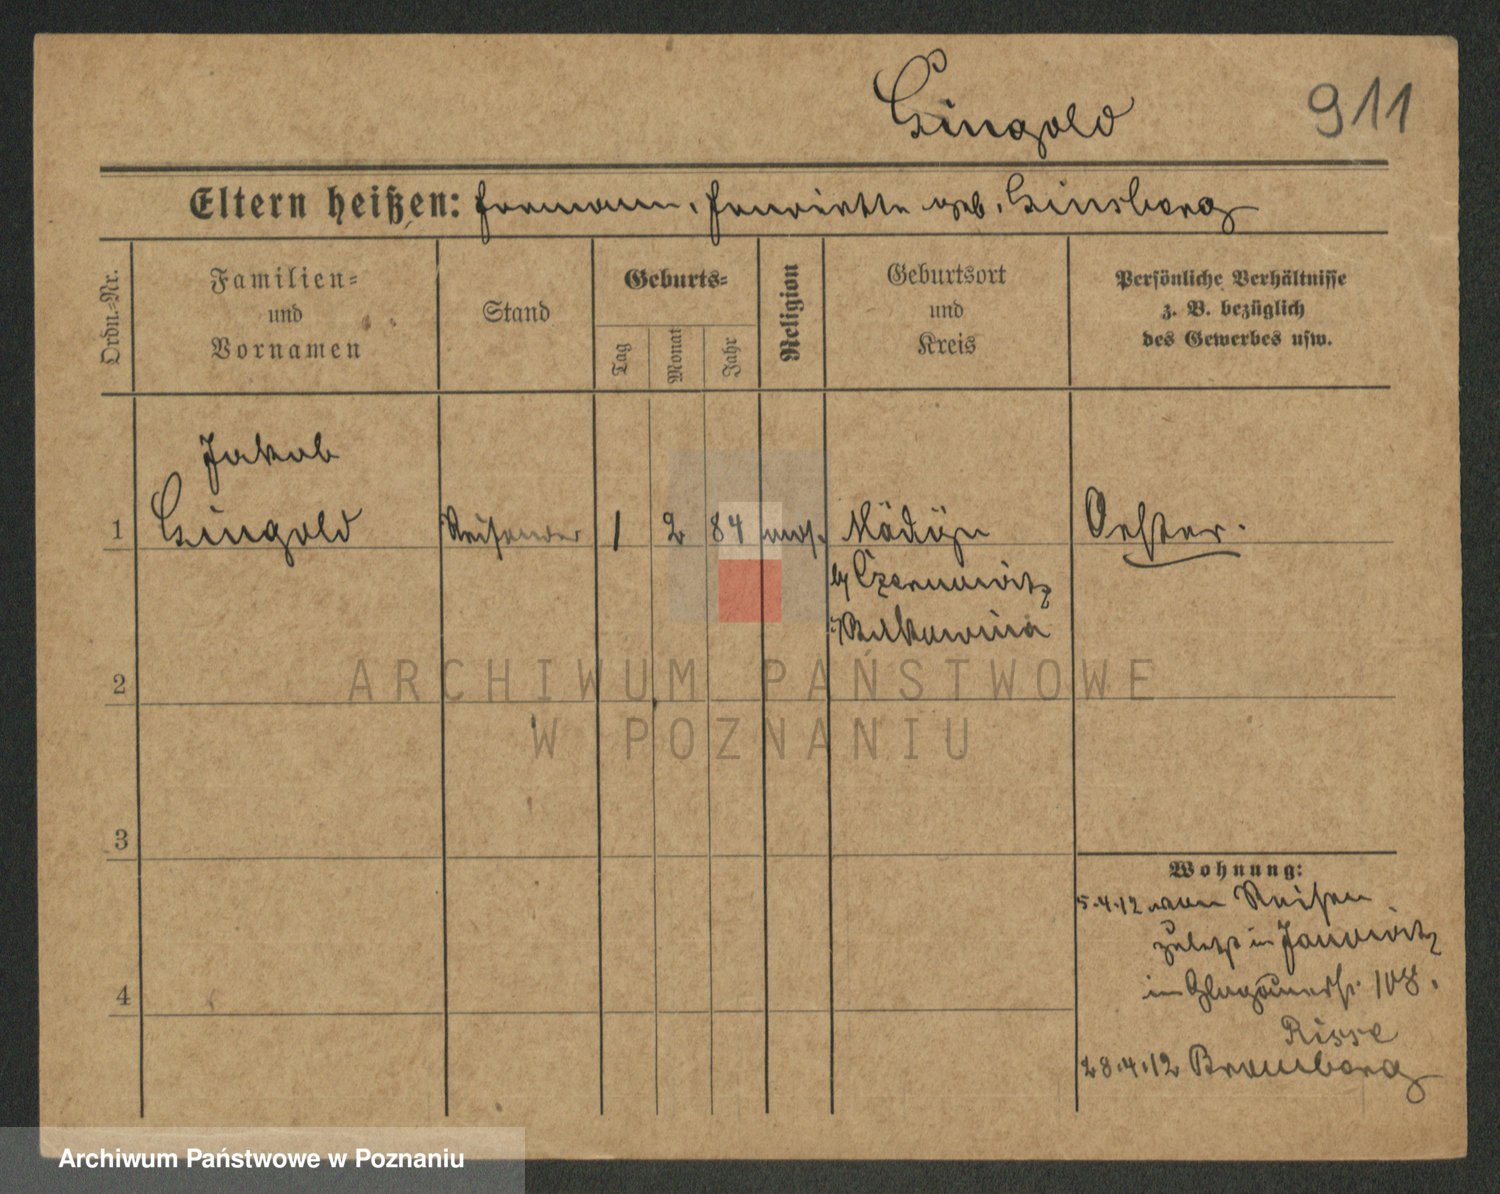 Gingold
911
Eltern heißen: Hermann, Henriette geb. Ginsberg
Ordn.-Nr.
Familien-
und
Vornamen
Stand
Geburts-
Tag
Monat
Jahr
Religion
Geburtsort
und
Kreis
Persönliche Verhältnisse
z. B. bezüglich
des Gewerbes usw.
Jakob
1 Gingold Reisender 1 2 84 mos. Oester.
b/ Czernowitz
i/ Bukowina
2
3
4
ARCHIWUM PAŃSTWOWE
W POZNANIU
Wohnung:
5.4.12 von Reisen
zuletzt in Janowitz
in Glogauerstr. 108.
Risse
28.4.12 Bromberg
Archiwum Państwowe w Poznaniu